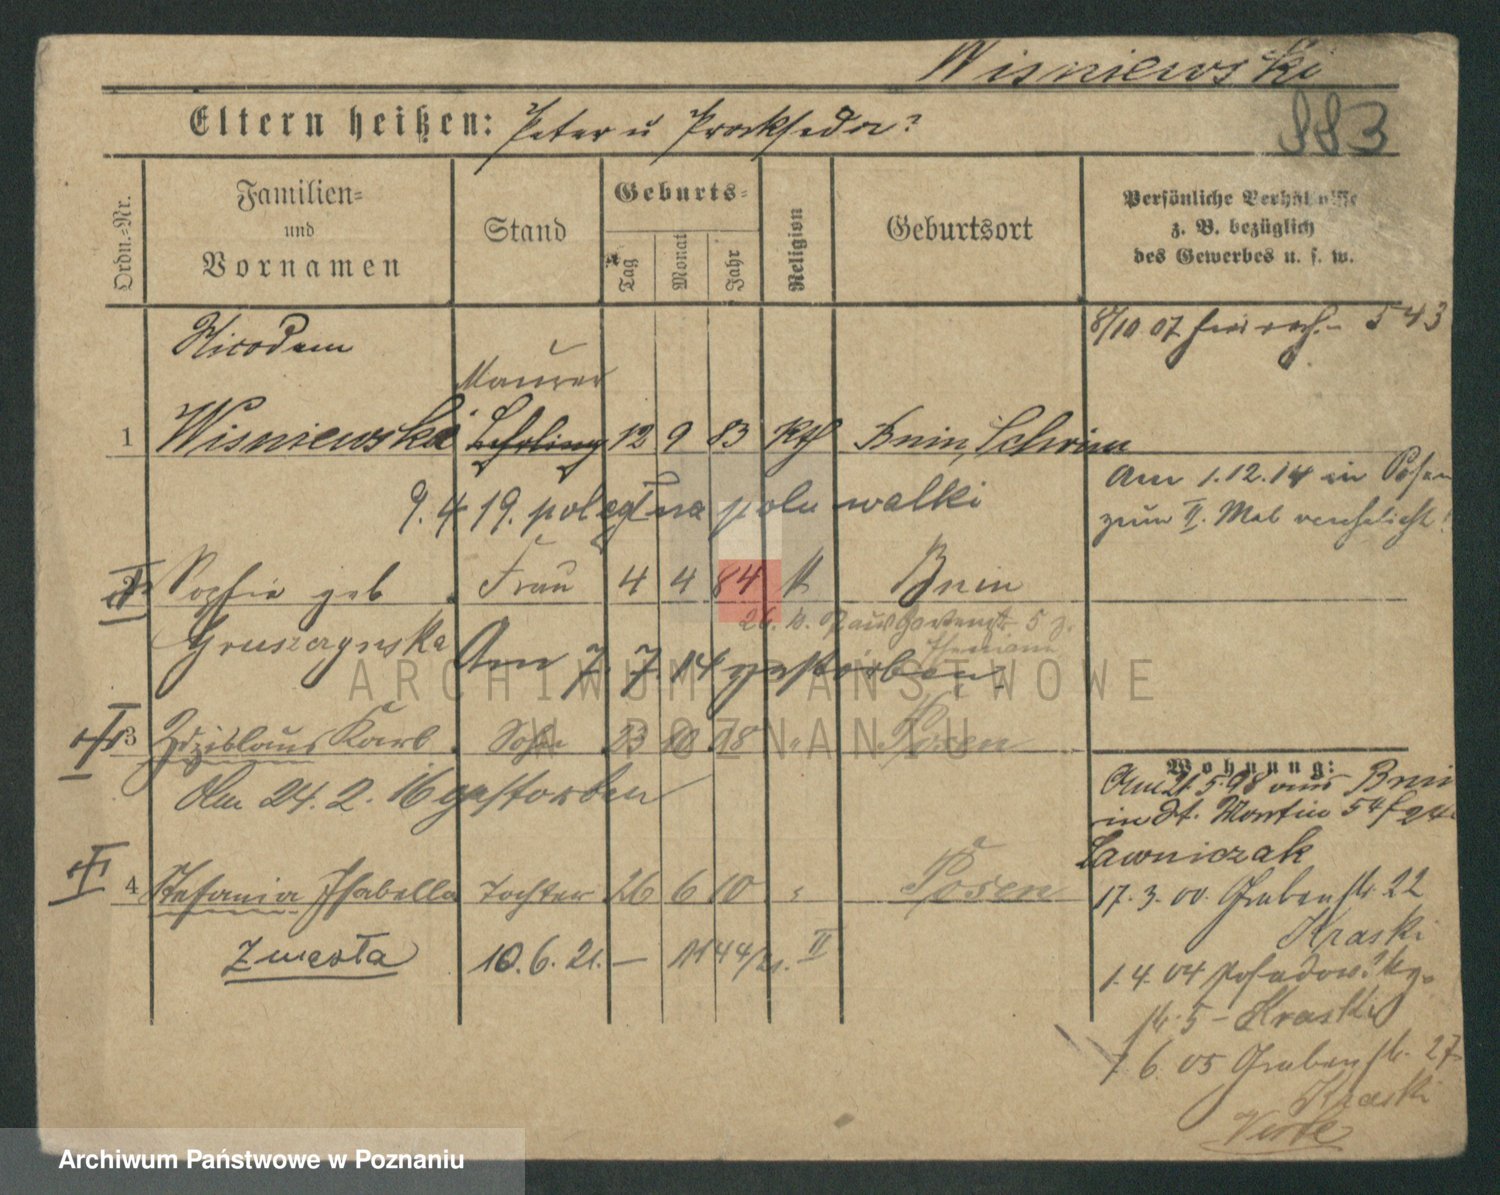 Wisniewski
883
Eltern heißen: Peter u Prakseda?
Ordn.-Nr.
Familien=
und
Vornamen
Stand
Geburts=
Tag
Monat
Jahr
Religion
Geburtsort
Persönliche Verhältnisse
z. B. bezüglich
des Gewerbes u. s. w.
8/10 07 543
Nicodem
Maurer
1 Wisniewski Lehrling 12 9 83 Kth Bnin, Schrim
Am 1.12.14 in Posen
zum II. Mal verehelicht!
9. 4 19. poległ na polu walki
2 Sophie geb Frau 4 4 84 k Bnin
Gruszczynska
Am 7. 7. 14 gestorben.
3 Zdzislaus Karl Sohn 23 10 08 " Posen
Am 24. 2. 16 gestorben
Wohnung:
Am 21.5.98 aus Bnin
in St. Martin 54 f 24
Lawniczak
4 Stefania Isabella Tochter 26 6 10 " Posen
17. 3. 00. Grabenstr. 22
Kraski
Zmarła 10. 6. 21. — 1144/21. II
1. 4. 04 Posadowsky-
str. 5 – Kraski
7. 6. 05 Grabenstr. 27
Kraski
Verte
ARCHIWUM PAŃSTWOWE
W POZNANIU
Archiwum Państwowe w Poznaniu